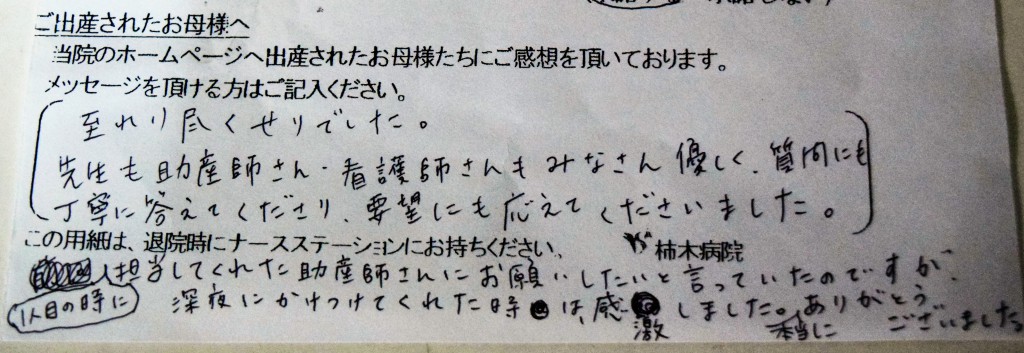 ご出産されたお母様へ
当院のホームページへ出産されたお母様たちにご感想を頂いております。
メッセージを頂ける方はご記入ください。
至れり尽くせりでした。
先生も助産師さん・看護師さんもみなさん優しく、質問にも
丁寧に答えてくださり、要望にも応えてくださいました。
この用紙は、退院時にナースステーションにお持ちください、 柿木病院
1人目の時に担当してくれた助産師さんにお願いしたいと言っていたのですが、
深夜にかけつけてくれた時は、感激しました。本当にありがとうございました